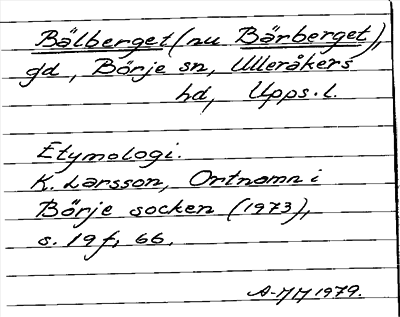 Bälberget (nu Bärberget),
gd, Börje sn, Ulleråkers
hd, Upps. l.
Etymologi.
K. Larsson, Ortnamn i
Börje socken (1973),
s. 19 f, 66.
A-MM 1979.